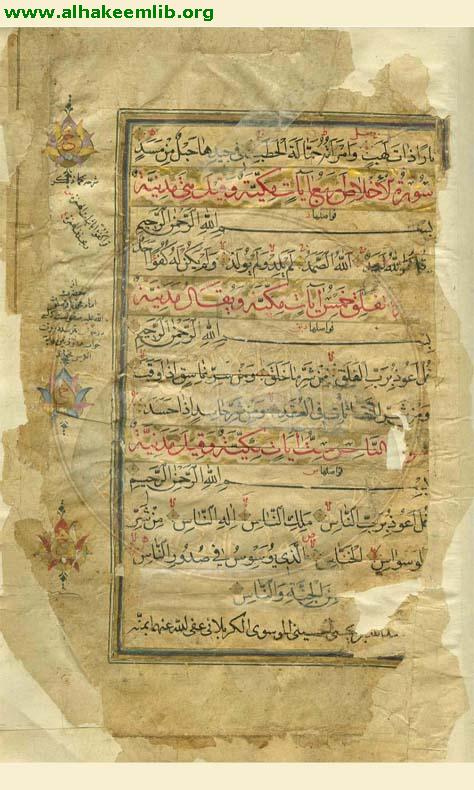 www.alhakeemlib.org
نارا ذات لهب وامراته حمالة الحطب في جيدها حبل من مسد
سورة الاخلاص اربع آيات مكية وقيل هي مدنية
فواصلها د
بسم الله الرحمن الرحيم
قل هو الله احد الله الصمد لم يلد ولم يولد ولم يكن له كفوا احد
الفلق خمس آيات مكية ويقال مدنية
فواصلها
بسم الله الرحمن الرحيم
قل اعوذ برب الفلق من شر ما خلق ومن شر غاسق اذا وقب
ومن شر النفاثات في العقد ومن شر حاسد اذا حسد
الناس ست آيات مكية وقيل مدنية
فواصلها س
بسم الله الرحمن الرحيم
قل اعوذ برب الناس ملك الناس اله الناس من شر
الوسواس الخناس الذي يوسوس في صدور الناس
من الجنة والناس
الحسيني الموسوي الكربلائي عفى الله عنهما بمنه